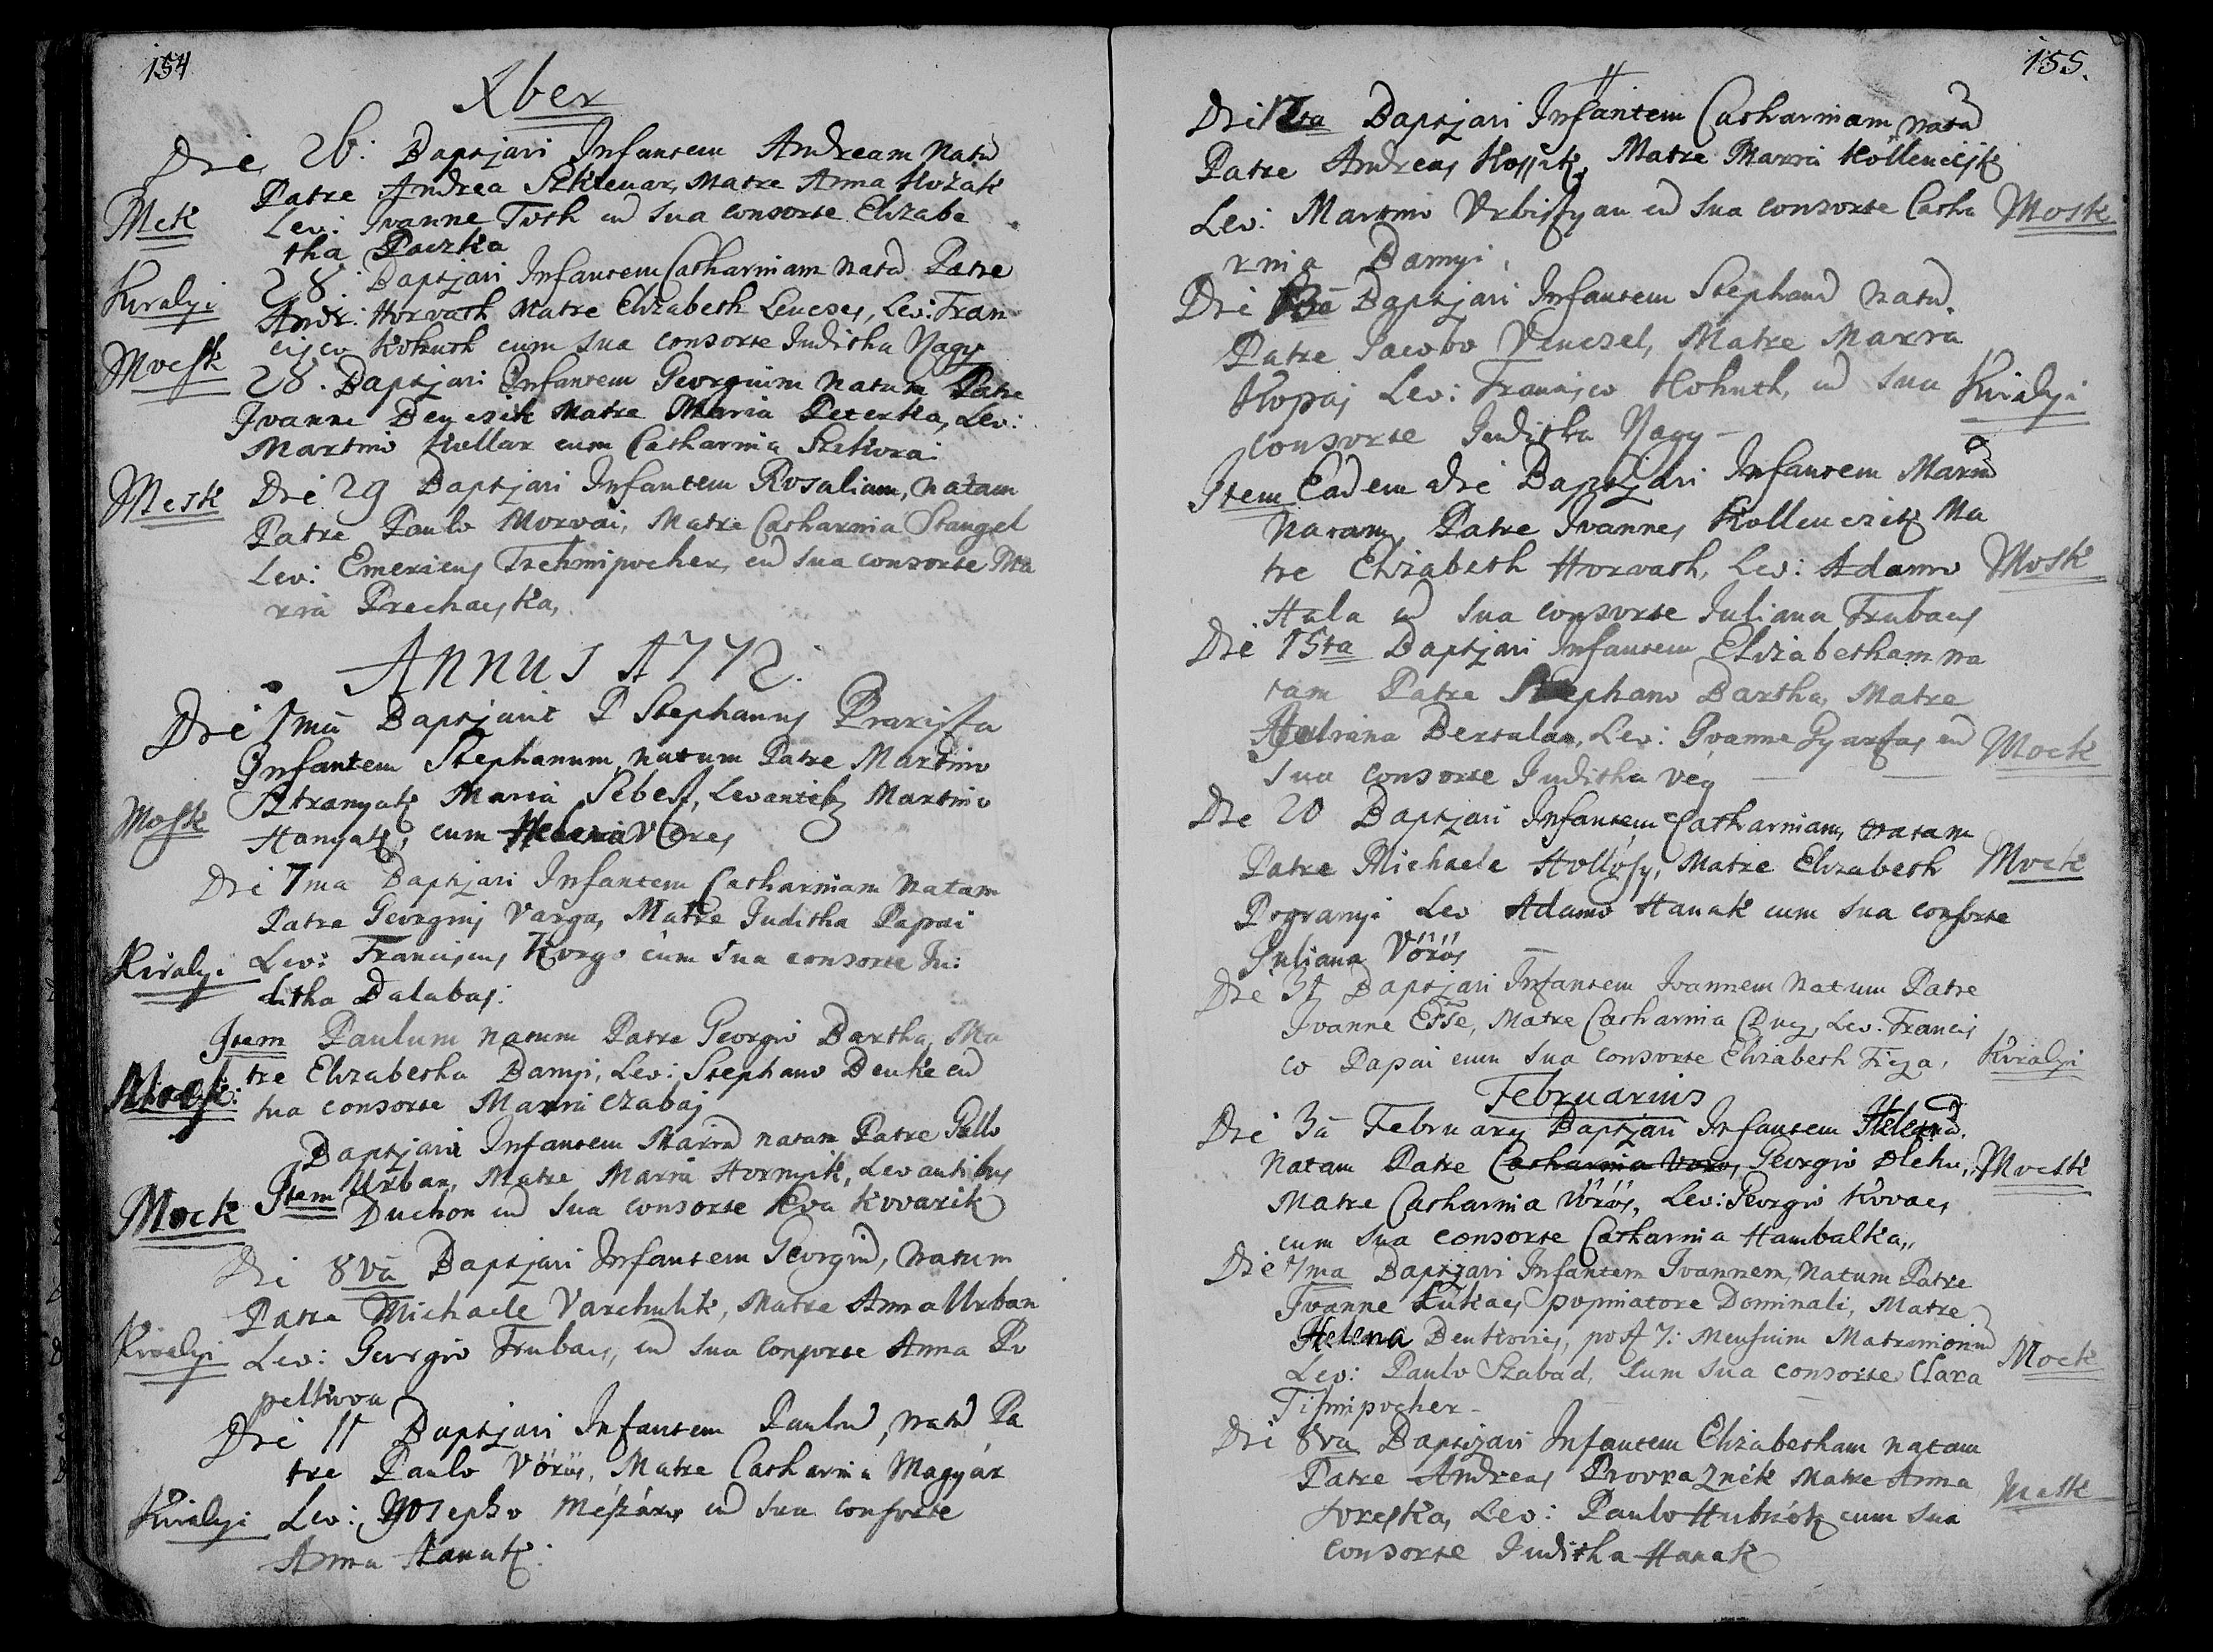 154
Xber
Die 26: Baptizavi Infantem Andream Natū
Patre Andrea Szklenar, Matre Anna Hozak
Mck Lev: Ivanne Toth cū sua consorte Elizabe
tha Paczka
28: Baptizavi Infantem Catharinam natā Patre
Kiralyi Andr: Horvath Matre Elizabeth Lencses, Lev: Fran
cisco Kohuth cum sua consorte Juditha Nagy
Mocsk 28. Baptizavi Infantem Georgium Natum Patre
Ivanne Benesik Matre Maria Peterka, Lev:
Martino Kollar cum Catharina
Mosk Die 29 Baptizavi Infantem Rosaliam, natam
Patre Paulo Morvai, Matre Catharina Stangel
Lev: Emericus cū sua consorte Ma
ria
ANNUS 1772.
Die 1mā Baptizavit P Stephanus Praxista
Infantem Stephanum natum Patre Martino
Maria Sebest, Levantibus Martino
Mosk cum Helena Vöres
Die 7ma Baptizavi Infantem Catharinam Natam
Patre Georgius Varga, Matre Juditha Papai
Kiralyi Lev: Franciscus Korgo cum sua consorte Ju:
ditha Dalabas:
Item Paulum natum Patre Georgio Bartha, Ma
Mocsk: tre Elizabetha Banyi, Lev: Stephano Benke cū
sua consorte Maria Czabaj
Baptizavi Infantem Mariā natam Patre Gallo
Item Urban, Matre Maria Hornyik, Levantibus
Mock Duchon cū sua consorte Eva Kovarik
Die 8vā Baptizavi Infantem Georgiū, natum
Patre Michaele Varchulik, Matre Anna Urban
Kiralyi Lev: Georgio Trubacs, cū sua consorte Anna Po
pelkova
Die 11 Baptizavi Infantem Paulū, natū Pa
tre Paulo Vörös, Matre Catharina Magyár
Kiralyi Lev: Josepho Mészáros cū sua consorte
Anna Hanak:
155.
Die 12ta Baptizavi Infantem Catharinam natā
Patre Andreas Matre Maria
Lev: Martino cū sua consorte Catha Mosk
rina Banyi,
Die 13ā Baptizavi Infantem Stephanū natū
Patre Jacobo Venczel, Matre Maria
Kopas Lev: Francisco Kohuth, cū sua Kiralyi
consorte Juditha Nagy –
Item Eadem die Baptizavi Infantem Mariā
Natam, Patre Ivannes Kollenczik Ma
tre Elizabeth Horvath, Lev: Adamo Mosk
Hala cū sua consorte Juliana Trubacs
Die 15ta Baptizavi Infantem Elizabetham na
tam Patre Stephano Bartha, Matre
Juliana Bertalan, Lev: Ivanne Gyarfas cū Mock
sua consorte Juditha Vég
Die 20 Baptizavi Infantem Catharinam, natam
Patre Michaele Hollósy, Matre Elizabeth Mock
Pogranyi Lev Adamo Hanak cum sua consorte
Juliana Vörös
Die 31 Baptizavi Infantem Ivannem Natum Patre
Ivanne Esse, Matre Catharina Lev: Francis
co Papai cum sua consorte Elizabeth Kiralyi
Februarius
Die 3ā Februarii Baptizavi Infantem Helenā
Natam Patre Catharina Vörös Georgio Mocsk
Matre Catharina Vörös, Lev: Georgio Kovacs
cum sua consorte Catharina Hambalka,,
Die 7ma Baptizavi Infantem Ivannem, natum Patre
Ivanne Lukacs popinatore Dominali, Matre
Helena Benkovics, post 7: Mensium Matrimoniū
Lev: Paulo Szabad, cum sua consorte Clara Mock
Die 8va Baptizavi Infantem Elizabetham natam
Patre Andreas Provraznik Matre Anna
Lev: Paulo cum sua Mosk
consorte Juditha Hanak